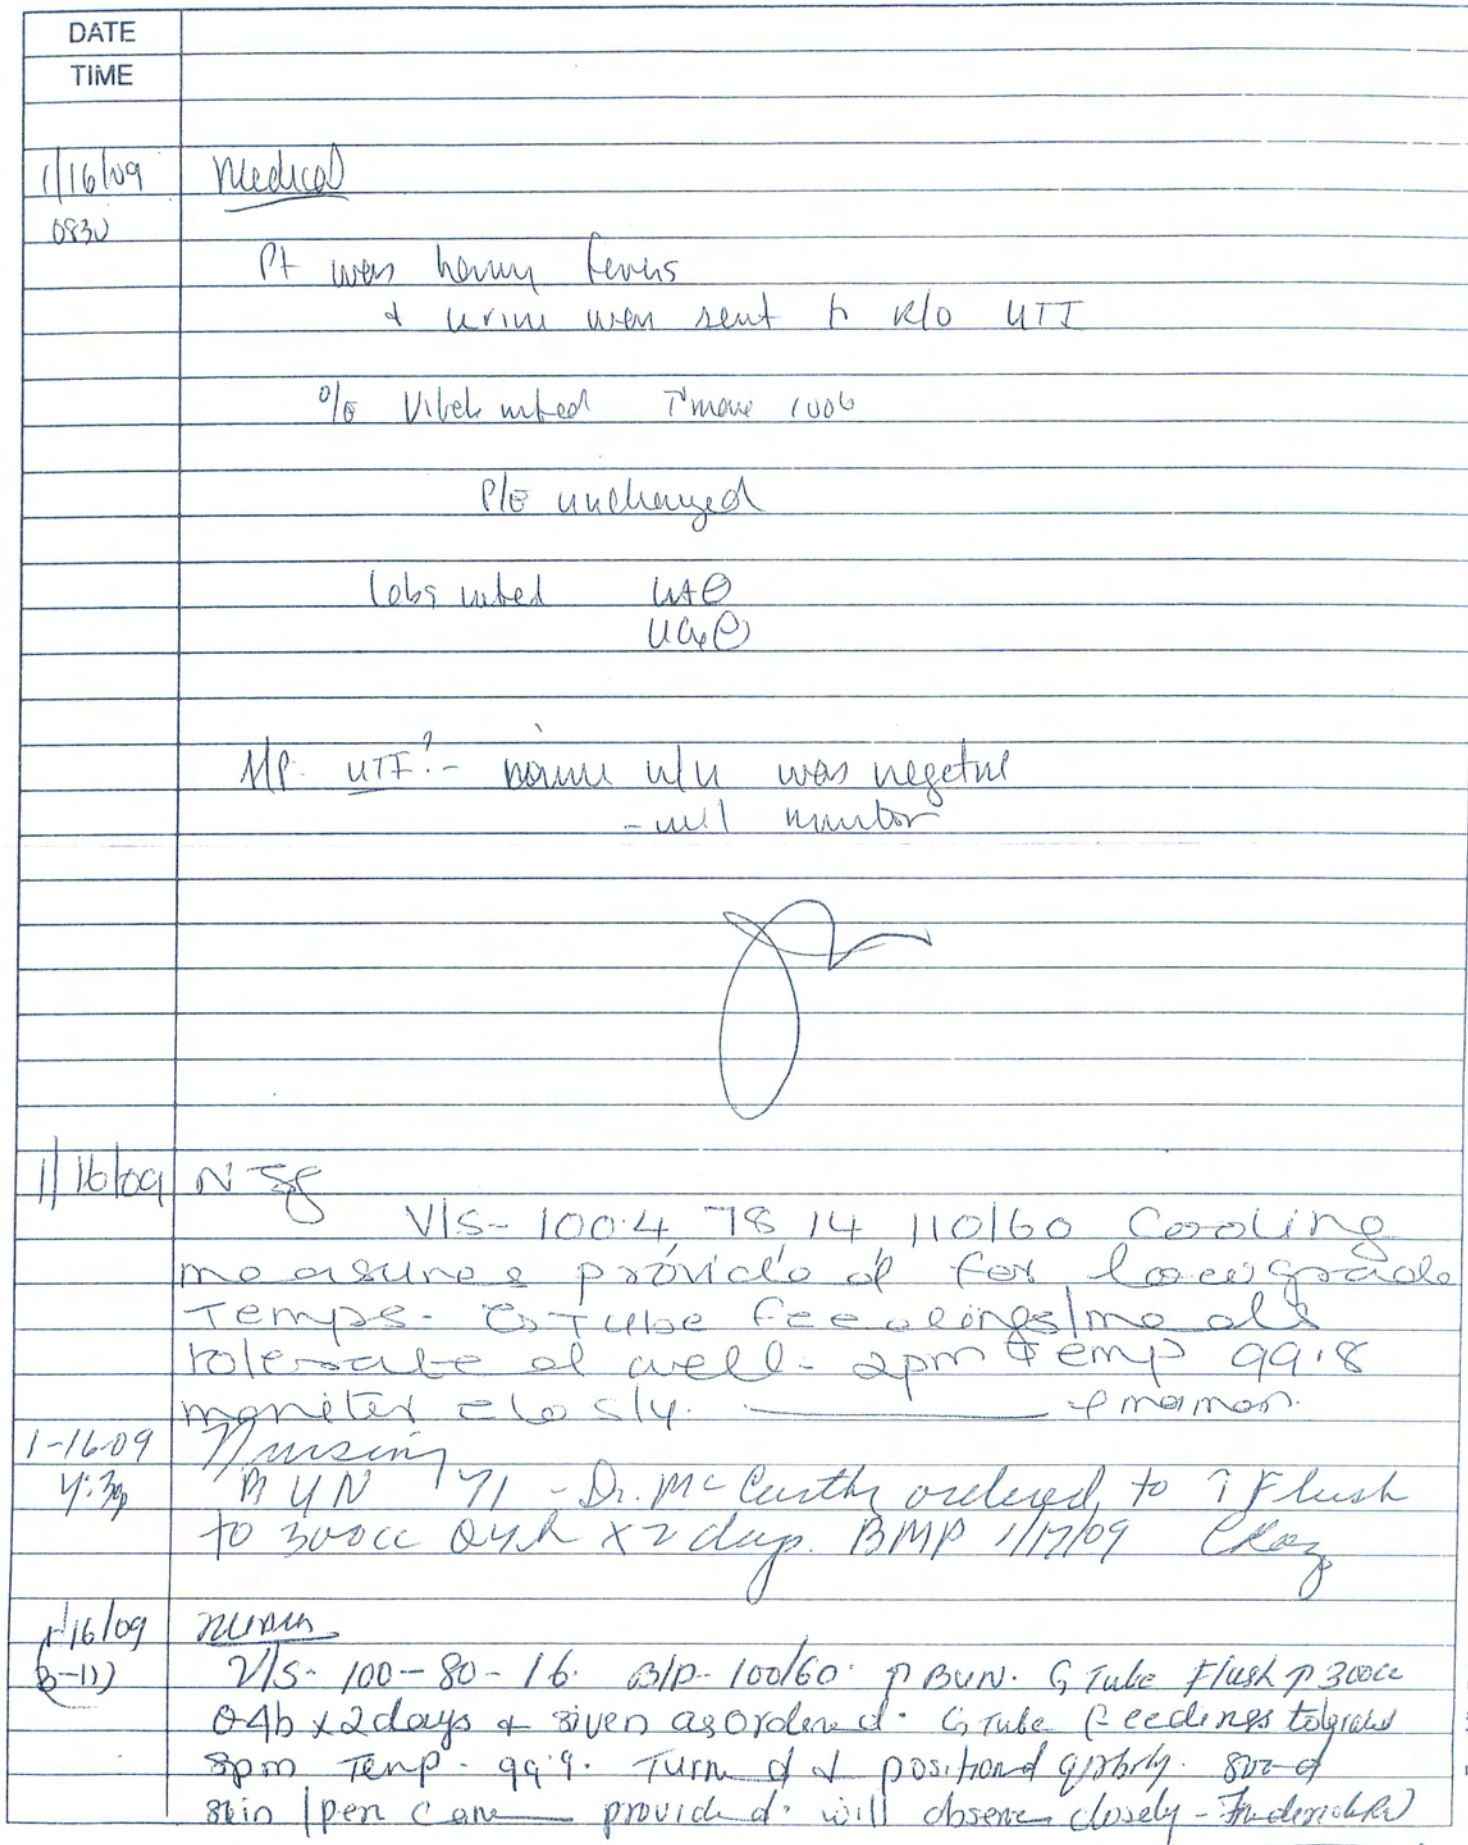 DATE
TIME
1/16/09 Medical
0830
Pt was having fevers
& urine was sent to R/O UTI
O/E Vitals noted Tmax 1006
P/E unchanged
Labs noted UA⊖
UCx⊖
A/P: UTI?- urine w/u was negative
- will monitor
1/16/09 NSg
V/S- 100.4, 78, 14, 110/60 Cooling
measures provided for low grade
Temps. G-Tube feedings/meals
tolerated well. 2pm temp 99.8
moniter closly.
1-16-09 Nursing
4:30p BUN 71 - Dr. McCarthy ordered to ↑ Flush
to 300cc Q4h x 2 days. BMP 1/17/09
1/16/09 Nursing
(3-11) V/S- 100-80-16. B/P- 100/60. ↑ BUN. G Tube Flush ↑ 300cc
Q4h x 2 days & given as ordered. G Tube feedings tolerated
8pm Temp - 99.9. Turned & positioned
skin/peri care provided. will observe closely - Frederick RN